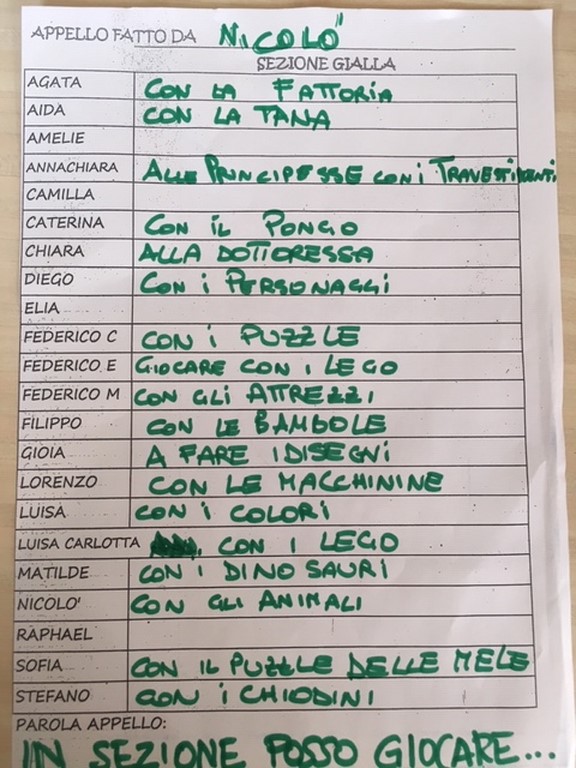 APPELLO FATTO DA NICOLO'
SEZIONE GIALLA
AGATA CON LA FATTORIA
AIDA CON LA TANA
AMELIE
ANNACHIARA ALLE PRINCIPESSE CON i TRAVESTIMENTI
CAMILLA
CATERINA CON iL PONGO
CHIARA ALLA DOTTORESSA
DIEGO CON i PERSONAGGi
ELIA
FEDERICO C CON i PUZZLE
FEDERICO E GIOCARE CON i LEGO
FEDERICO M CON GLI ATTREZZI
FILIPPO CON LE BAMBOLE
GIOIA A FARE I DISEGNi
LORENZO CON LE MACCHININE
LUISA CON i COLORi
LUISA CARLOTTA CON I LEGO
MATILDE CON i DINOSAURi
NICOLO' CON GLI ANIMALI
RAPHAEL
SOFIA CON IL PUZZLE DELLE MELE
STEFANO CON i CHIODINI
PAROLA APPELLO:
IN SEZIONE POSSO GIOCARE...